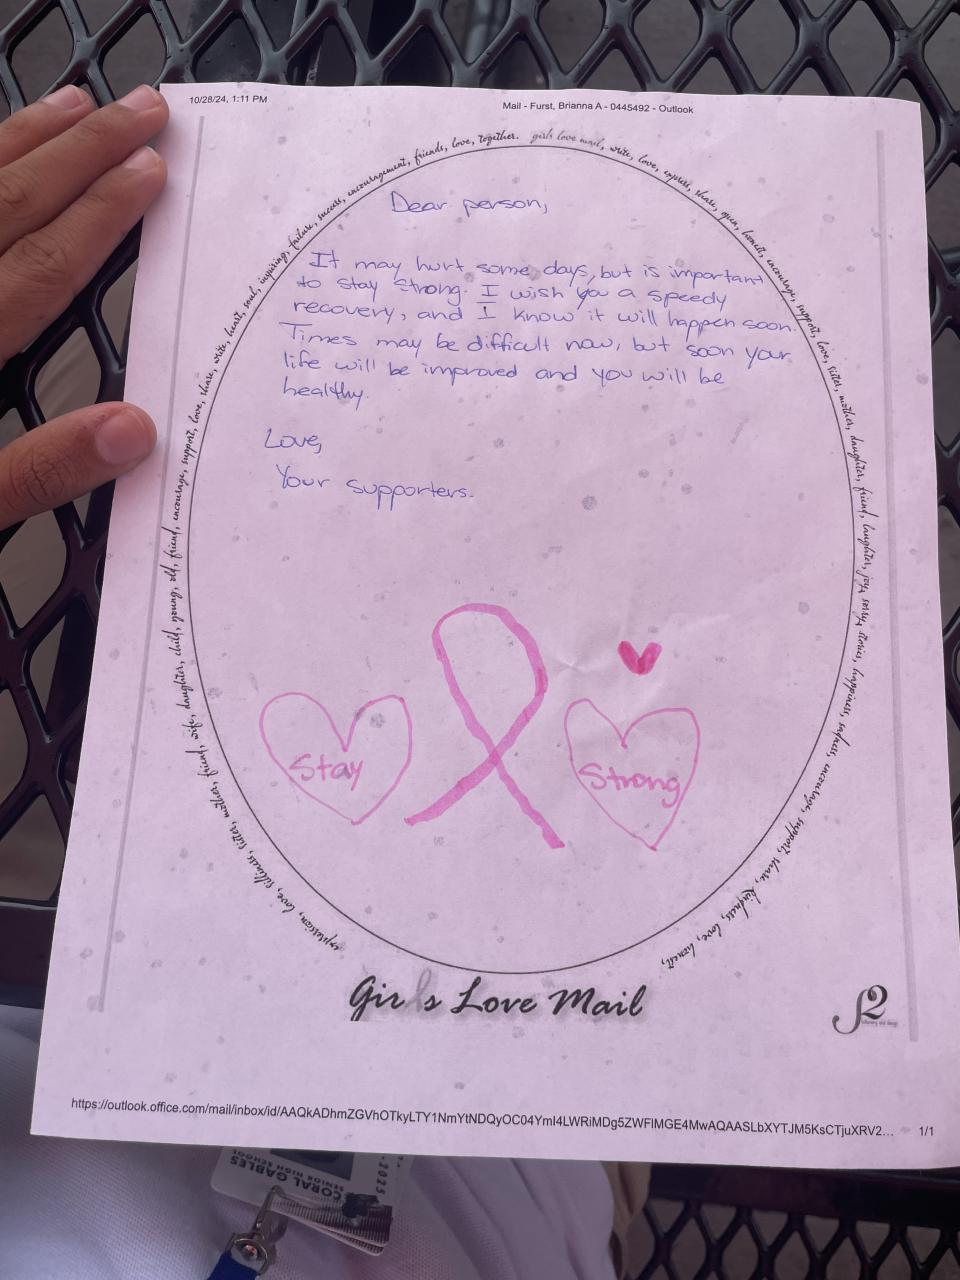 10/28/24, 1:11 PM
Mail - Furst, Brianna A - 0445492 - Outlook
expression, love, silliness, sister, mother, friend, wife, daughter, child, young, old, friend, encourage, support, love, share, write, heart, soul, inspiring, failure, success, encouragement, friends, love, together.
girls love mail, write, love, express, share, open, honest, encourage, support, love, sister, mother, daughter, friend, laughter, joy, sorry, stories, happiness, sadness, encourage, support, share, kindness, love, honest,
Dear person,
It may hurt some days, but is important
to stay strong. I wish you a speedy
recovery, and I know it will happen soon.
Times may be difficult now, but soon your
life will be improved and you will be
healthy.
Love,
Your supporters.
Stay
Strong
Girls Love Mail
https://outlook.office.com/mail/inbox/id/
1/1
CORAL GABLES
SENIOR HIGH SCHOOL
-2025